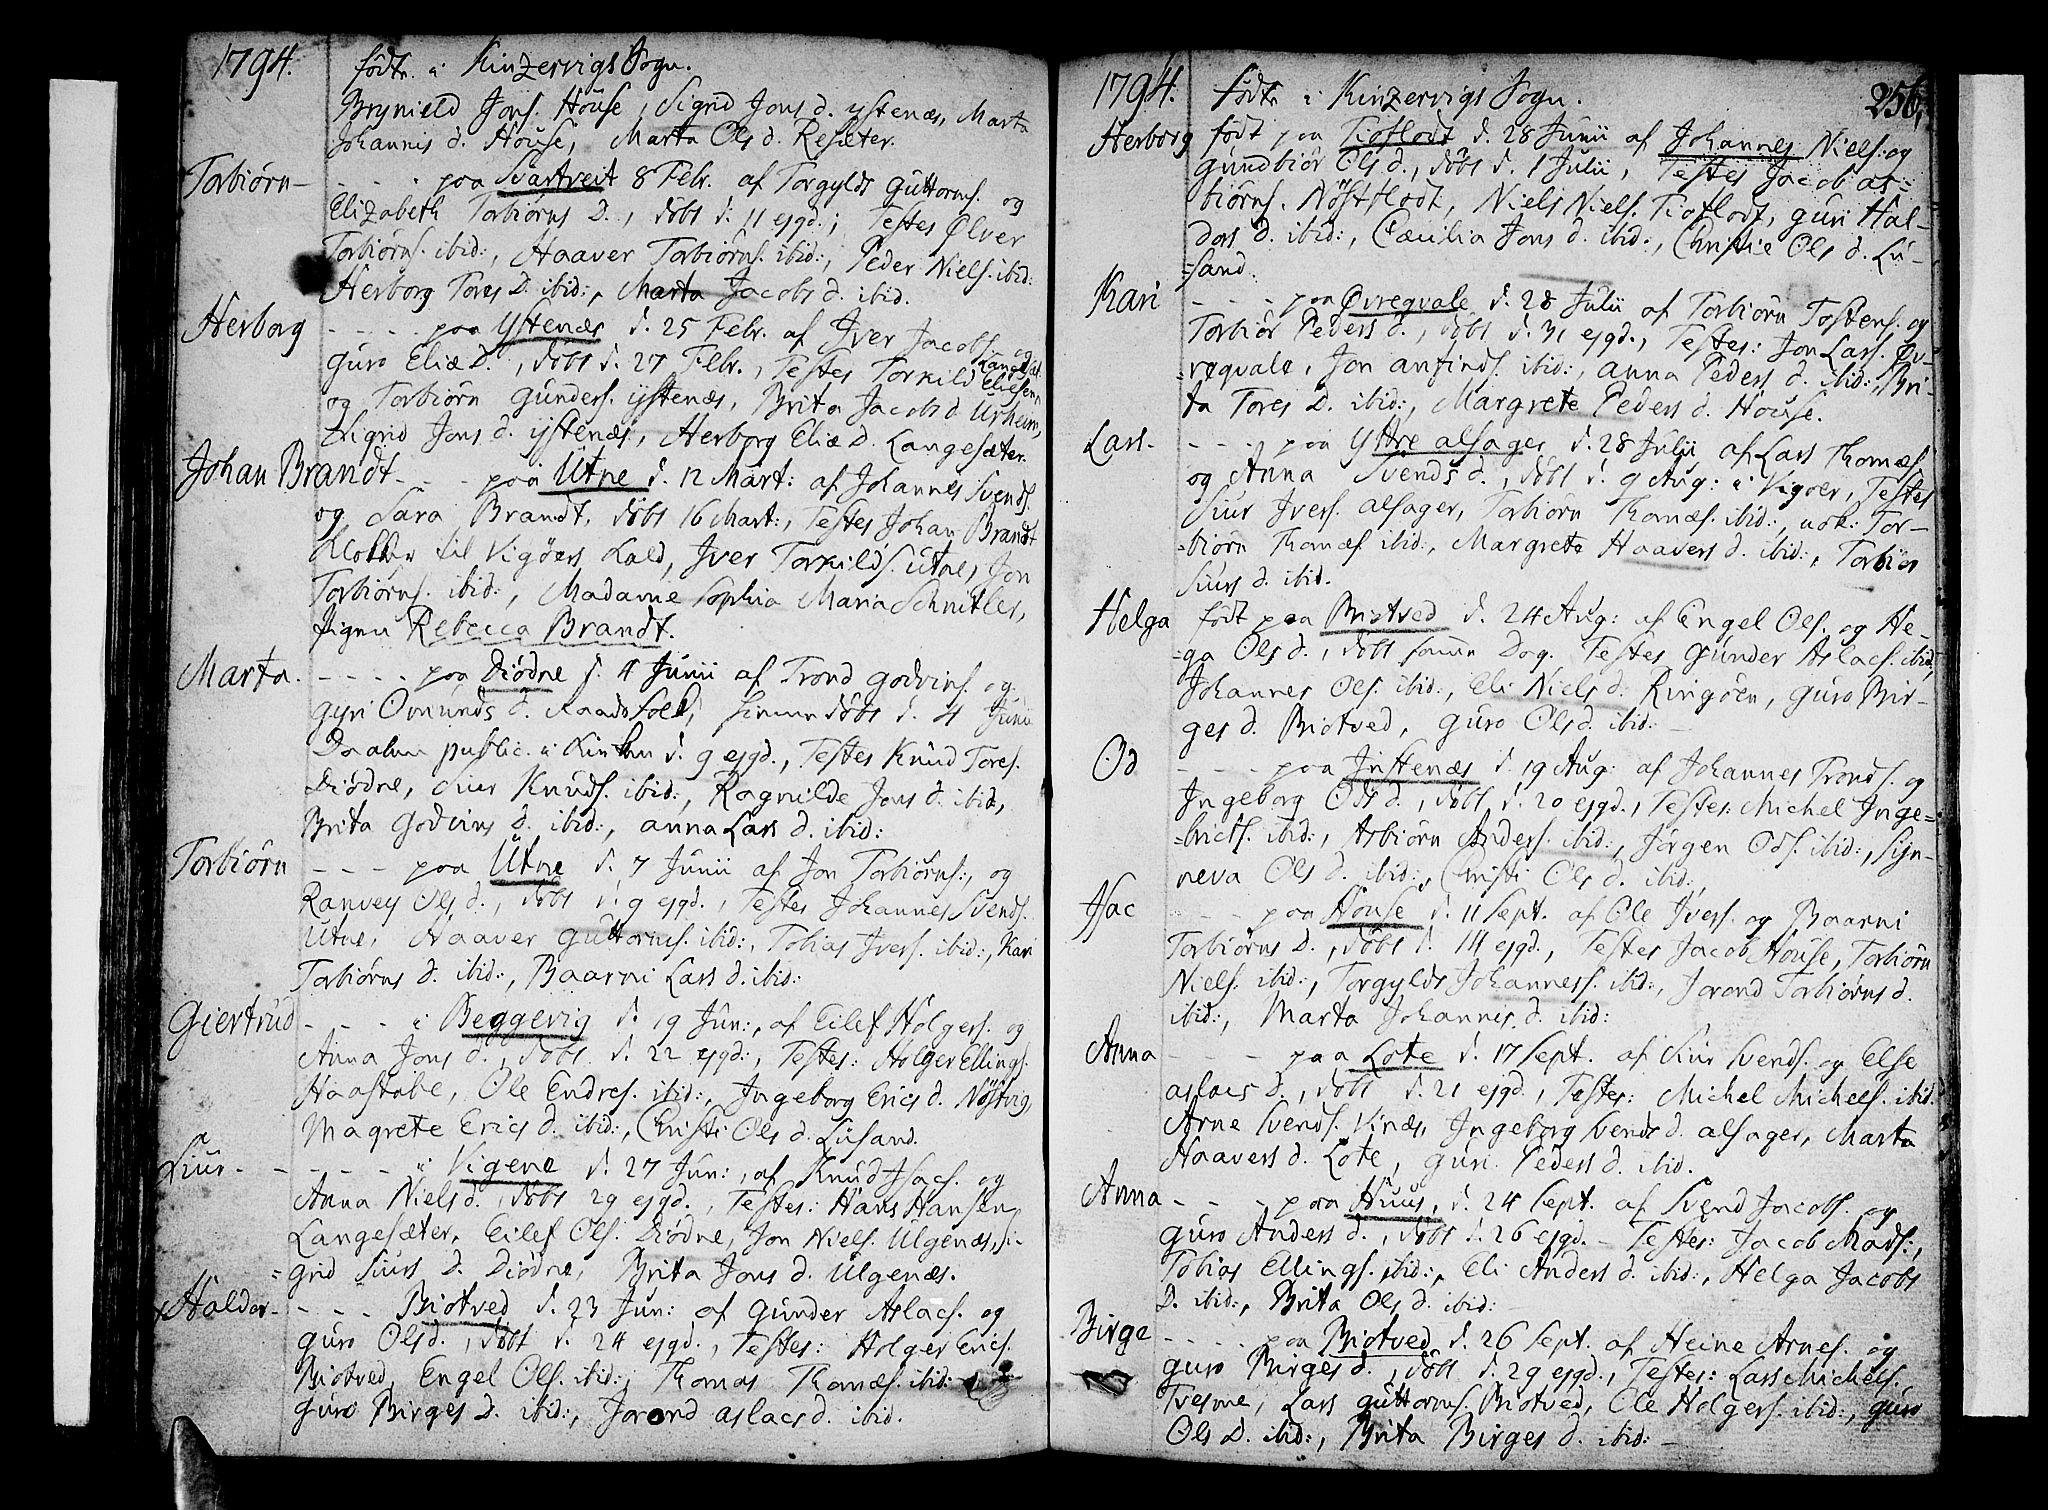 1794. födte i Kinzervigs Sogn.
Brynield Jons. House, Sigrid Jons d. ystenæs, Marta
Johannis d. House, Marta Ols d. Resæter.
Torbiørn - - - paa Svartveit 8 Febr. af Torgylds Guttorms. og
Elizabeth Torbiørns D., döbt d. 11 ejgd.; Testes Ølver
Torbiörns. ibid:, Haaver Torbiörns. ibid:, Peder Niels. ibid:
Herborg Tores D. ibid:, Marta Jacobs d. ibid.
Herborg - - - paa Ystenæs d. 25 Febr. af Jver Jacobs. og
Guro Eliæ D., döbt d. 27 Febr., Testes Torkild Elies. Langesæt.
og Torbiörn Gunders. ystenæs, Brita Jacobs d. Urheim,
Sigrid Jons d. ystenæs, Herborg Eliæ D. Langesæter.
Johan Brandt - - - paa Utne d. 12 Mart: af Johannes Svends.
og Sara Brandt, döbt 16 Mart:, Testes Johan Brandt
Klokker til Vigöers Kald, Jver Torkilds. Utne, Jon
Torbiörns. ibid:, Madame Sophia Maria Schnitler,
Pigen Rebecca Brandt.
Marta - - - paa Diödne d. 4 Junii af Trond Godvins. og
Gyri Omunds d. Raads, hiemmedöbt d. 4 Junii
Daaben public. i Kirken d. 9 ejgd., Testes Knud Tores.
Diödne, Siur Knuds. ibid:, Ragnilde Jons d. ibid,
Brita Godvins d. ibid:, Anna Lars d. ibid:
Torbiörn - - - paa Utne d. 7 Junii af Jon Torbiörns:, og
Ranvey Ols d., döbt d. 9 ejgd., Testes Johannes Svends.
Utne, Haaver Guttorms. ibid:, Tobias Jvers. ibid:, Kari
Torbiörns d. ibid:, Baarni Lars d. ibid:
Giertrud - - - i Beggevig d. 19 Jun:, af Eilef Holgers. og
Anna Jons d., döbt d. 22 ejgd:, Testes: Holger Ellings.
Haastabe, Ole Endres. ibid:, Jngeborg Erics d. Nöstvig,
Magrete Erics d. ibid:, Christi Ols d. Lusand.
Siur - - - i Vigene d. 27 Jun:, af Knud Jsacs. og
Anna Niels d., döbt 29 ejgd., Testes: Hans Hansen
Langesæter, Eilef Ols. Diödne, Jon Niels. Ulgenæs, Si-
=grid Siurs D. Diödne, Brita Jons d. Ulgenæs.
Haldor - - - Biotved d. 23 Jun: af Gunder Aslacs. og
Guro Ols d., döbt d. 24 ejgd., Testes: Holger Erics.
Biotved, Engel Ols. ibid:, Thomas Thomæs. ibid:
Guro Birges D. ibid:, Jorond aslacs d. ibid.
1794. Födte i Kinzervigs Sogn. 256.
Herborg födt paa Tioflodt d. 28 Junii af Johannes Niels: og
Gundbiör Ols d., döbt d. 1 Julii, Testes Jacob as=
biörns. Nöstflodt, Niels Niels. Tioflodt, Guri Hal-
dors d. ibid:, Cæcilia Jons d. ibid:, Christie Ols d. Lu-
=sand.
Kari - - - paa Ovreqvale d. 28 Julii af Torbiörn Tostens. og
Torbiör Peders d., döbt d. 31 ejgd., Testes: Jon Lars. Øv-
=reqvale, Jon anfinds. ibid:, anna Peders d. ibid:, Bri-
ta Tores D. ibid:, Margrete Peders d. House.
Lars - - - paa Yttre alsager d. 28 Julii af Lars Thomæs.
og Anna Svends d., döbt d. 9 Aug: i Vigöer, Testes
Siur Jvers. alsager, Torbiörn Thomæs. ibid:, nok: Tor-
=biörn Thomæs. ibid:, Margreta Haavers d. ibid:, Torbiör
Siurs d. ibid.
Helga födt paa Biotved d. 24 Aug: af Engel Ols. og He-
=ga Ols d., döbt samme Dag. Testes Gunder Aslacs. ibid,
Johannes Ols. ibid:, Eli Niels d: Ringöen, Guro Bir-
ges d. Biotved, Guro Ols d. ibid:
Od - - - paa Jnstenæs d. 19 Aug: af Johannes Tronds. og
Jngeborg Ods d., döbt d. 20 ejgd., Testes: Michel Jnge=
=brics. ibid:, Asbiörn Anders. ibid:, Jörgen Ods. ibid:, Syn-
neva Ols d. ibid:, Christi Ols d. ibid:,
Jsac - - - paa House d. 11 Sept. af Ole Jvers. og Baarni
Torbiörns D., döbt d. 14 ejgd., Testes Jacob House, Torbiörn
Niels. ibid:, Torgylds Johanness. ibid:, Jorond Torbiörns d.
ibid:, Marta Johannis d. ibid:
Anna - - - paa Lote d. 17 Sept. af Siur Svends. og Else
aslacs d., döbt d. 21 ejgd., Testes: Michel Michels. ibid.
Arne Svends. Vinæs, Jngeborg Svends d. alsager, Marta
Haavers d. Lote, Guri Peders d. ibid.
Anna - - - paa Huus, d. 24 Sept. af Svend Jacobs. og
Guro Anders d., döbt d. 26 ejgd. - Testes: Jacob Mads:,
Tobias Ellings. ibid:, Eli Anders d. ibid:, Helga Jacobs
D. ibid:, Brita Ols d. ibid:
Birge - - - paa Biotved d. 26 Sept. af Heine Arnes. og
Guro Birges d., döbt d. 29 ejgd., Testes: Lars Michels.
Tvesme, Lars Guttorms. Biotved, Ole Holgers. ibid:, Guro
Ols D. ibid:, Brita Birges d. ibid: